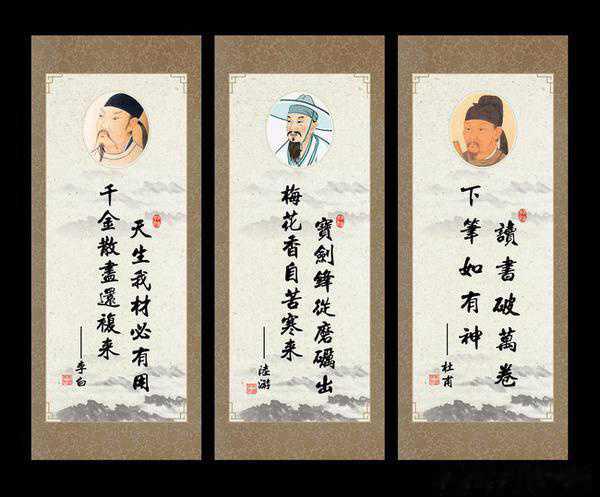 天生我材必有用
千金散盡還複来
——李白
寶劍鋒從磨礪出
梅花香自苦寒来
——陸游
讀書破萬卷
下筆如有神
——杜甫